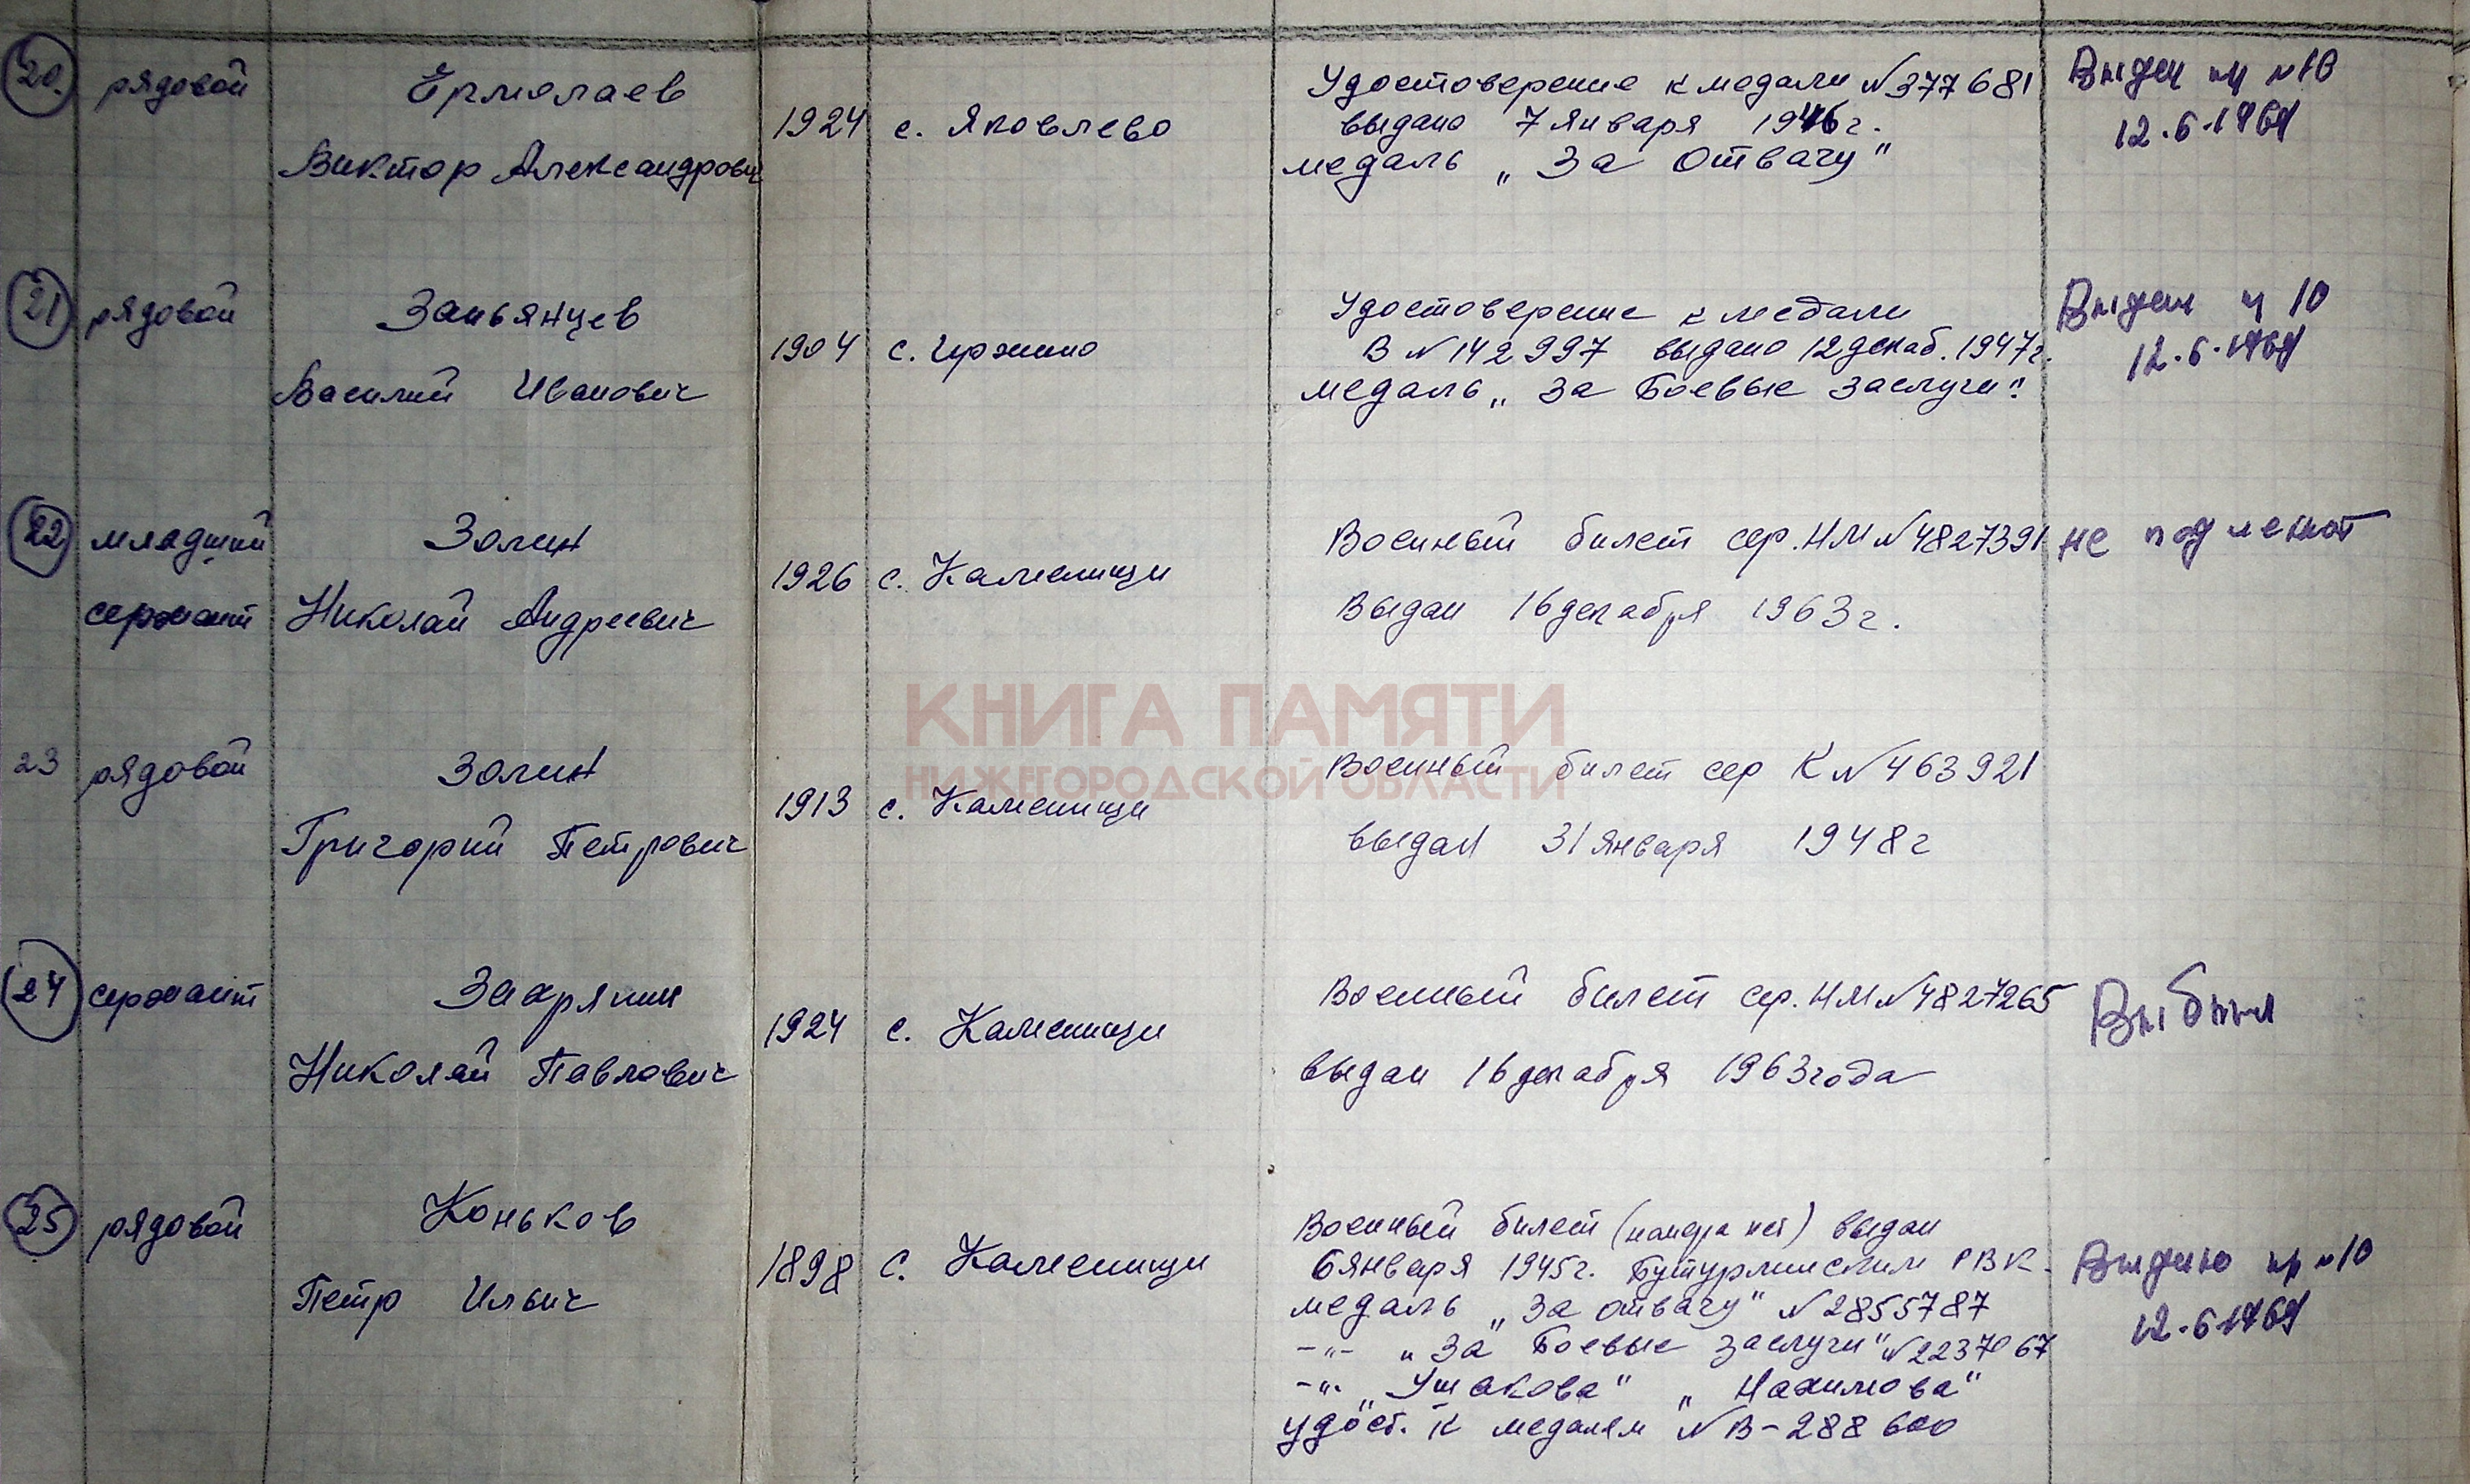 20. рядовой Ермолаев
Виктор Александрович
1924 с. Яковлево
Удостоверение к медали № 377681
выдано 7 января 1946 г.
медаль „За Отвагу"
Выдан №10
12.6.1969
21 рядовой Заньянцев
Василий Иванович
1904 с.
Удостоверение к медали
В № 142997 выдано 12 декаб. 1947 г.
медаль „За Боевые заслуги".
Выдан 10
12.6.1969
22 младший сержант
Золин
Николай Андреевич
1926 с. Каменищи
Военный билет сер. НМ № 4827391
Выдан 16 декабря 1963 г.
не подлежит
КНИГА ПАМЯТИ
НИЖЕГОРОДСКОЙ ОБЛАСТИ
23 рядовой Золин
Григорий Петрович
1913 с. Каменищи
Военный билет сер К № 463921
выдан 31 января 1948 г
24 сержант Захряпин
Николай Павлович
1924 с. Каменищи
Военный билет сер. НМ № 4827265
выдан 16 декабря 1963 года
Выбыл
25 рядовой Коньков
Петр Ильич
1898 с. Каменищи
Военный билет (номера нет) выдан
6 января 1945 г. Бутурлинским РВК.
медаль „За отвагу" № 2855787
-"- „За Боевые заслуги" № 2237067
-"- „Ушакова" „Нахимова"
удост. к медалям № В-288600
Выдано №10
12.6.1969